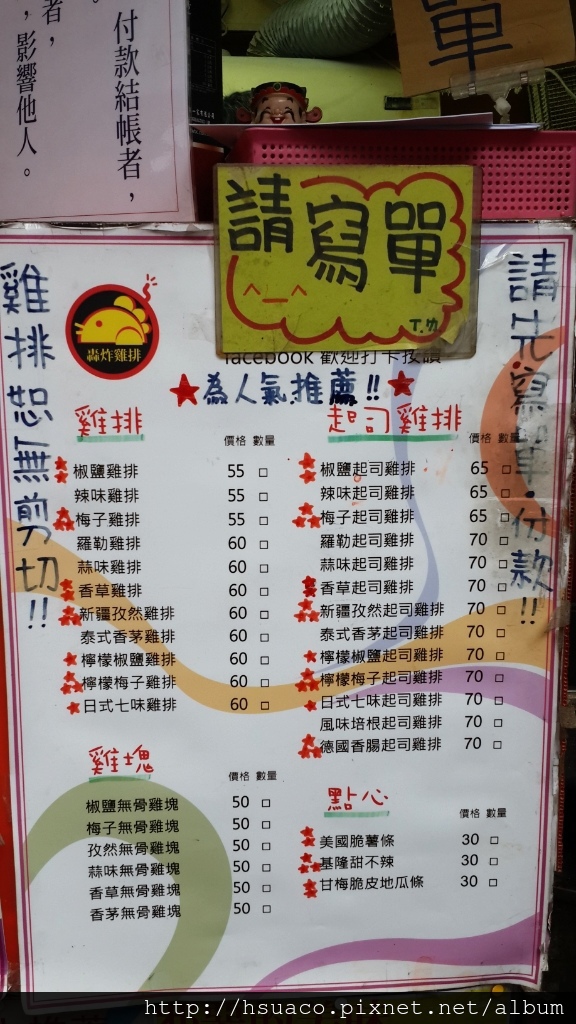 付款結帳者，
者，
，影響他人。
單
請寫單
T.M
雞排恕無剪切!!
請先寫單．付款!!
轟炸雞排
facebook 歡迎打卡按讚
★為人氣推薦!!★
雞排
價格 數量
椒鹽雞排 55 □
辣味雞排 55 □
梅子雞排 55 □
羅勒雞排 60 □
蒜味雞排 60 □
香草雞排 60 □
新疆孜然雞排 60 □
泰式香茅雞排 60 □
檸檬椒鹽雞排 60 □
檸檬梅子雞排 60 □
日式七味雞排 60 □
起司雞排
價格 數量
椒鹽起司雞排 65 □
辣味起司雞排 65 □
梅子起司雞排 65 □
羅勒起司雞排 70 □
蒜味起司雞排 70 □
香草起司雞排 70 □
新疆孜然起司雞排 70 □
泰式香茅起司雞排 70 □
檸檬椒鹽起司雞排 70 □
檸檬梅子起司雞排 70 □
日式七味起司雞排 70 □
風味培根起司雞排 70 □
德國香腸起司雞排 70 □
雞塊
價格 數量
椒鹽無骨雞塊 50 □
梅子無骨雞塊 50 □
孜然無骨雞塊 50 □
蒜味無骨雞塊 50 □
香草無骨雞塊 50 □
香茅無骨雞塊 50 □
點心
價格 數量
美國脆薯條 30 □
基隆甜不辣 30 □
甘梅脆皮地瓜條 30 □
http://hsuaco.pixnet.net/album